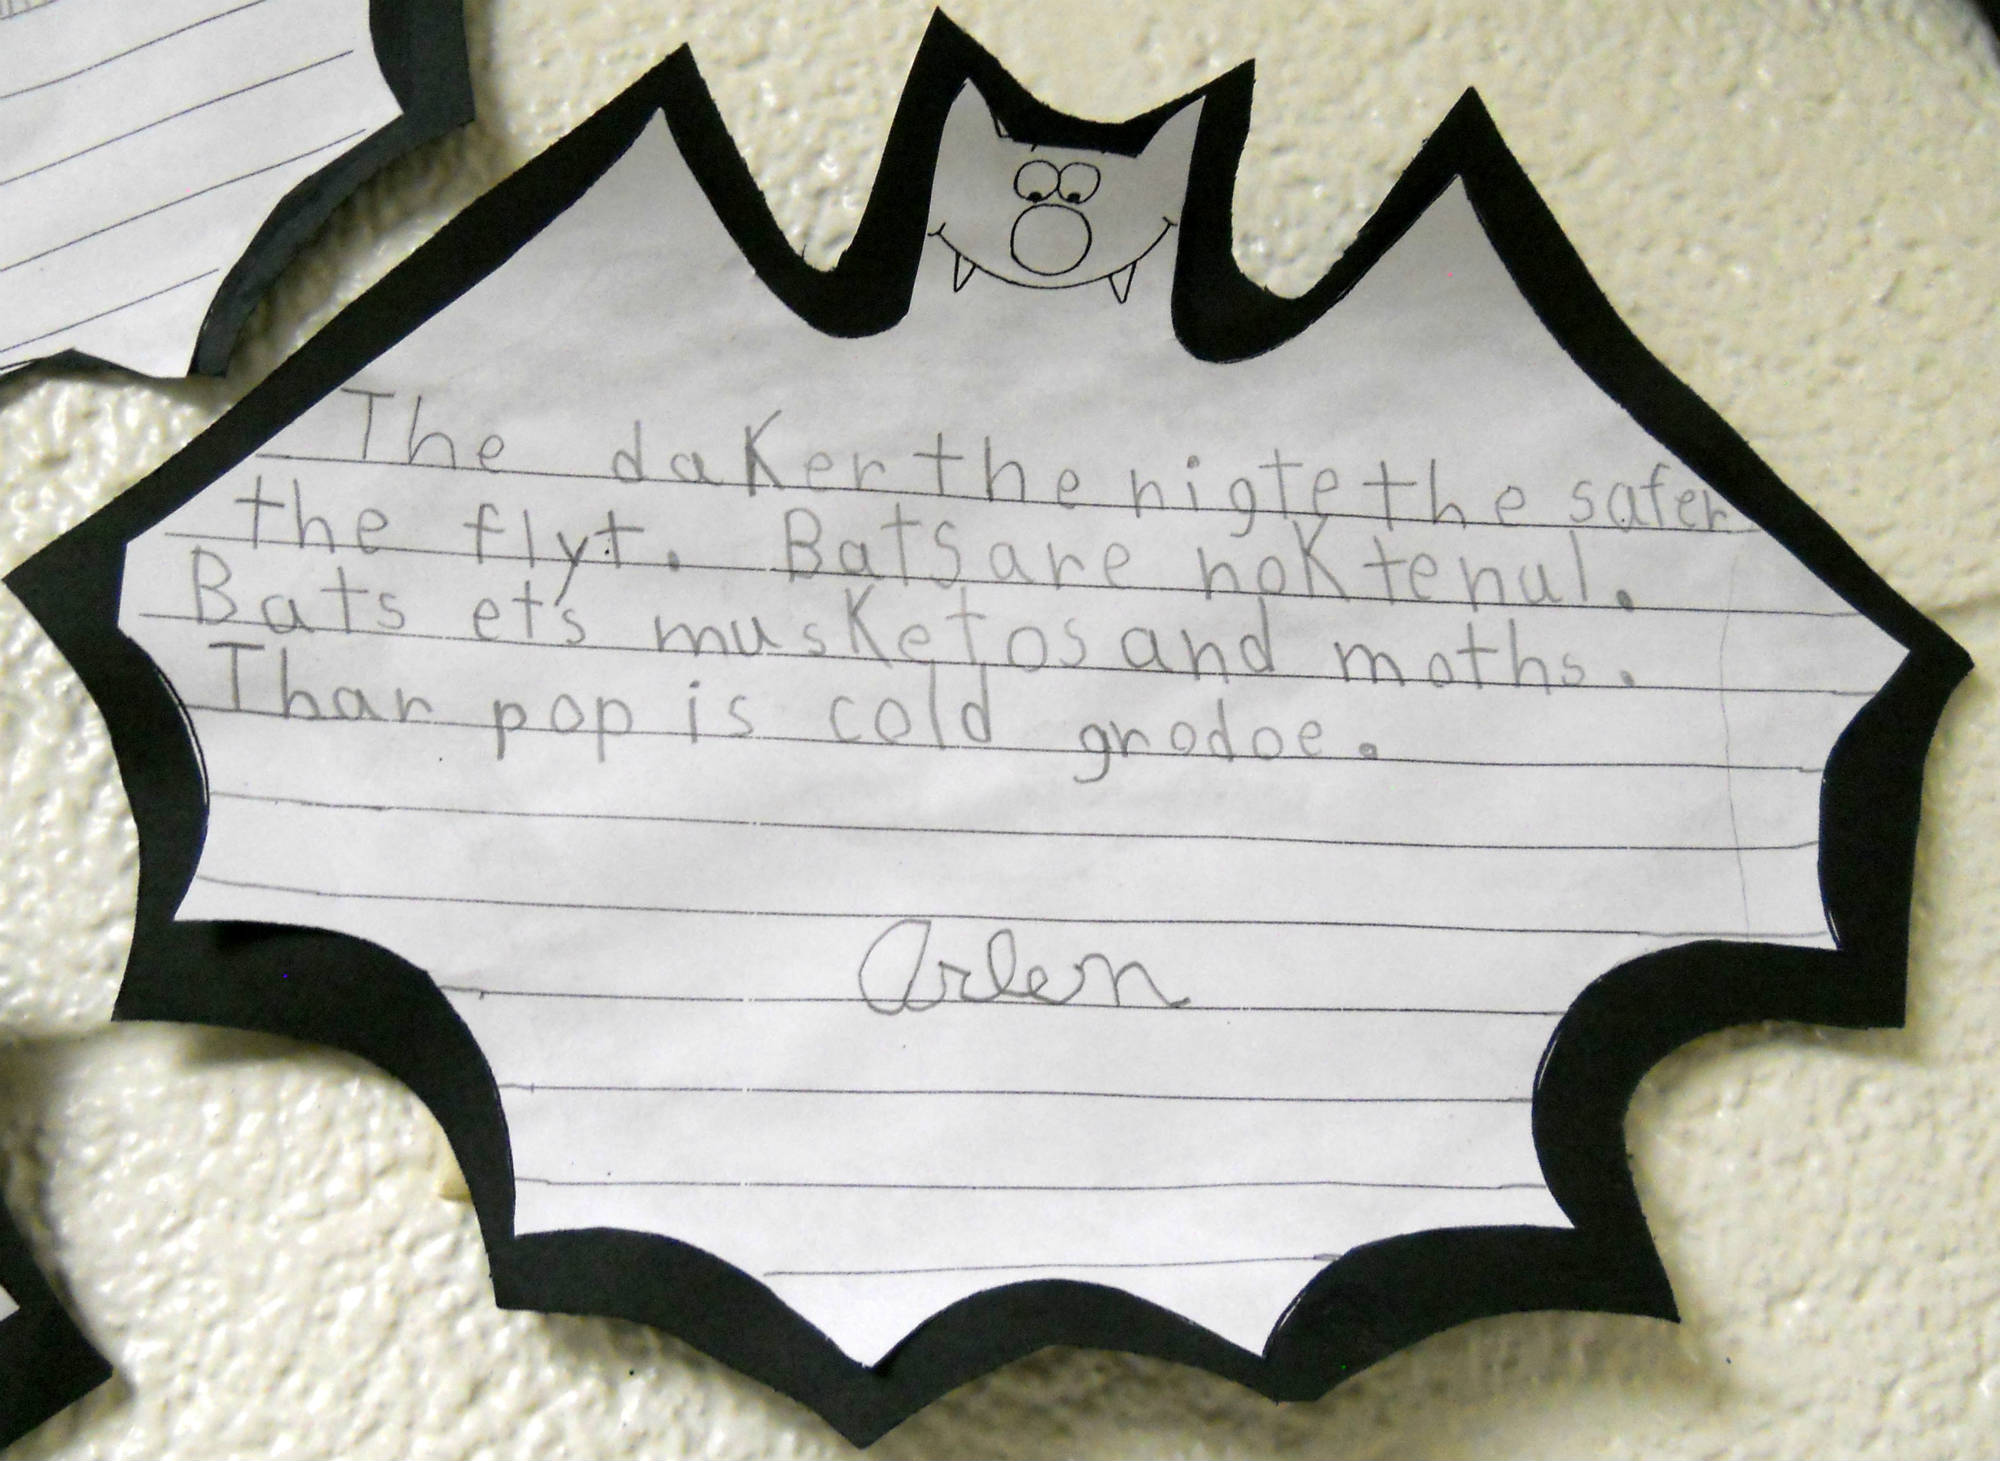 The daker the nigte the safer
the flyt. Bats are noktenul.
Bats ets musketos and moths.
Thar pop is cold grodoe.
Arlen